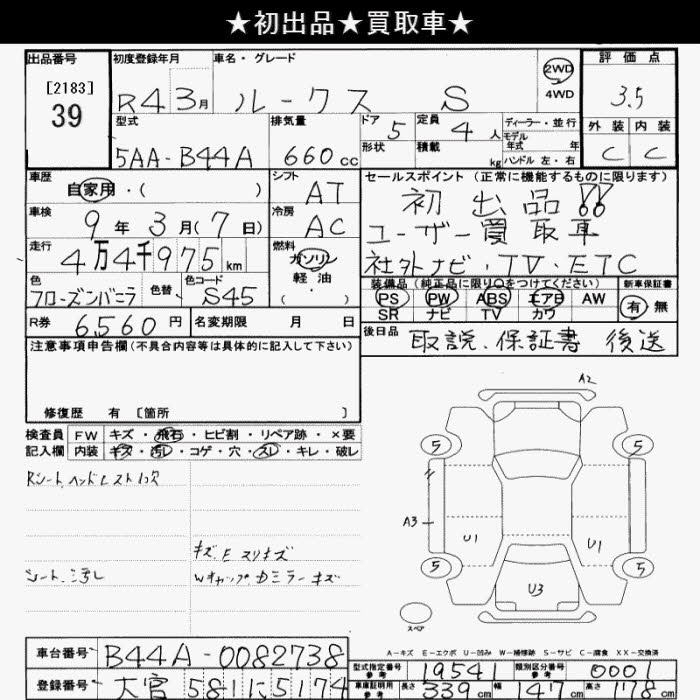 ★初出品★買取車★
出品番号
[2183]
39
初度登録年月
R4 3月
車名・グレード
ルークス S
2WD
4WD
評価点
3.5
外装 内装
C C
型式
5AA-B44A
排気量
660cc
ドア 5
形状
定員 4人
積載 kg
ディーラー・並行
モデル
年式 年
ハンドル 左・右
車歴
自家用・( )
車検
9年3月(7日)
走行
4万4千975km
色
フローズンバニラ
色替
色コード
S45
シフト
AT
冷房
AC
燃料
ガソリン
軽油
( )
セールスポイント(正常に機能するものに限ります)
初出品!!
ユーザー買取車
社外ナビ・TV・ETC
装備品(純正品に限り○をつけてください)
PS PW ABS エアB AW
SR ナビ TV カワ
新車保証書
有 無
R券 6,560円
名変期限 月 日
後日品
取説、保証書 後送
注意事項申告欄(不具合内容等は具体的に記入して下さい)
修復歴 有 [箇所 ]
検査員 FW キズ・飛石・ヒビ割・リペア跡・×要
記入欄 内装 キズ・汚レ・コゲ・穴・スレ・キレ・破レ
キズ、E スリキズ
A2
5 5
A3
U1 U1
5 5
U3
スペア
A-キズ E-エクボ U-凹み W-補修跡 S-サビ C-腐食 XX-交換済
車台番号 B44A-0082738
登録番号 大宮 581 に 5174
型式指定番号
参考
19541
類別区分番号
参考
0001
車庫証明用
参考
長さ 339cm 幅 147cm 高さ 178cm